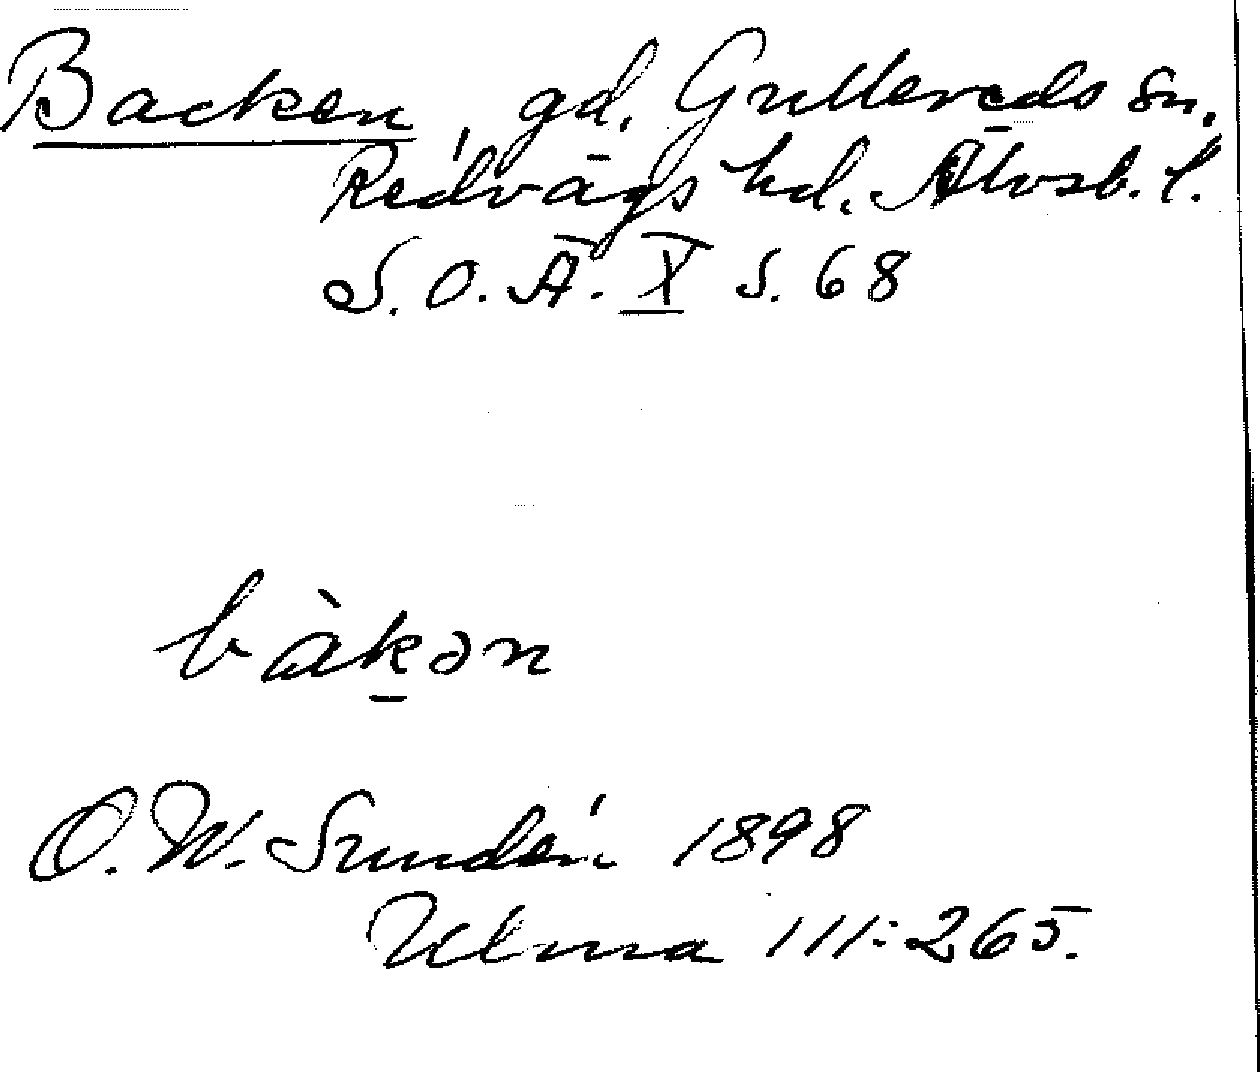 Backen, gd. Gullereds sn.
Redvägs hd. Älvsb. l.
S. O. Ä. X s. 68
bàk̠ən
O. W. Sundén 1898
Ulma 111:265.